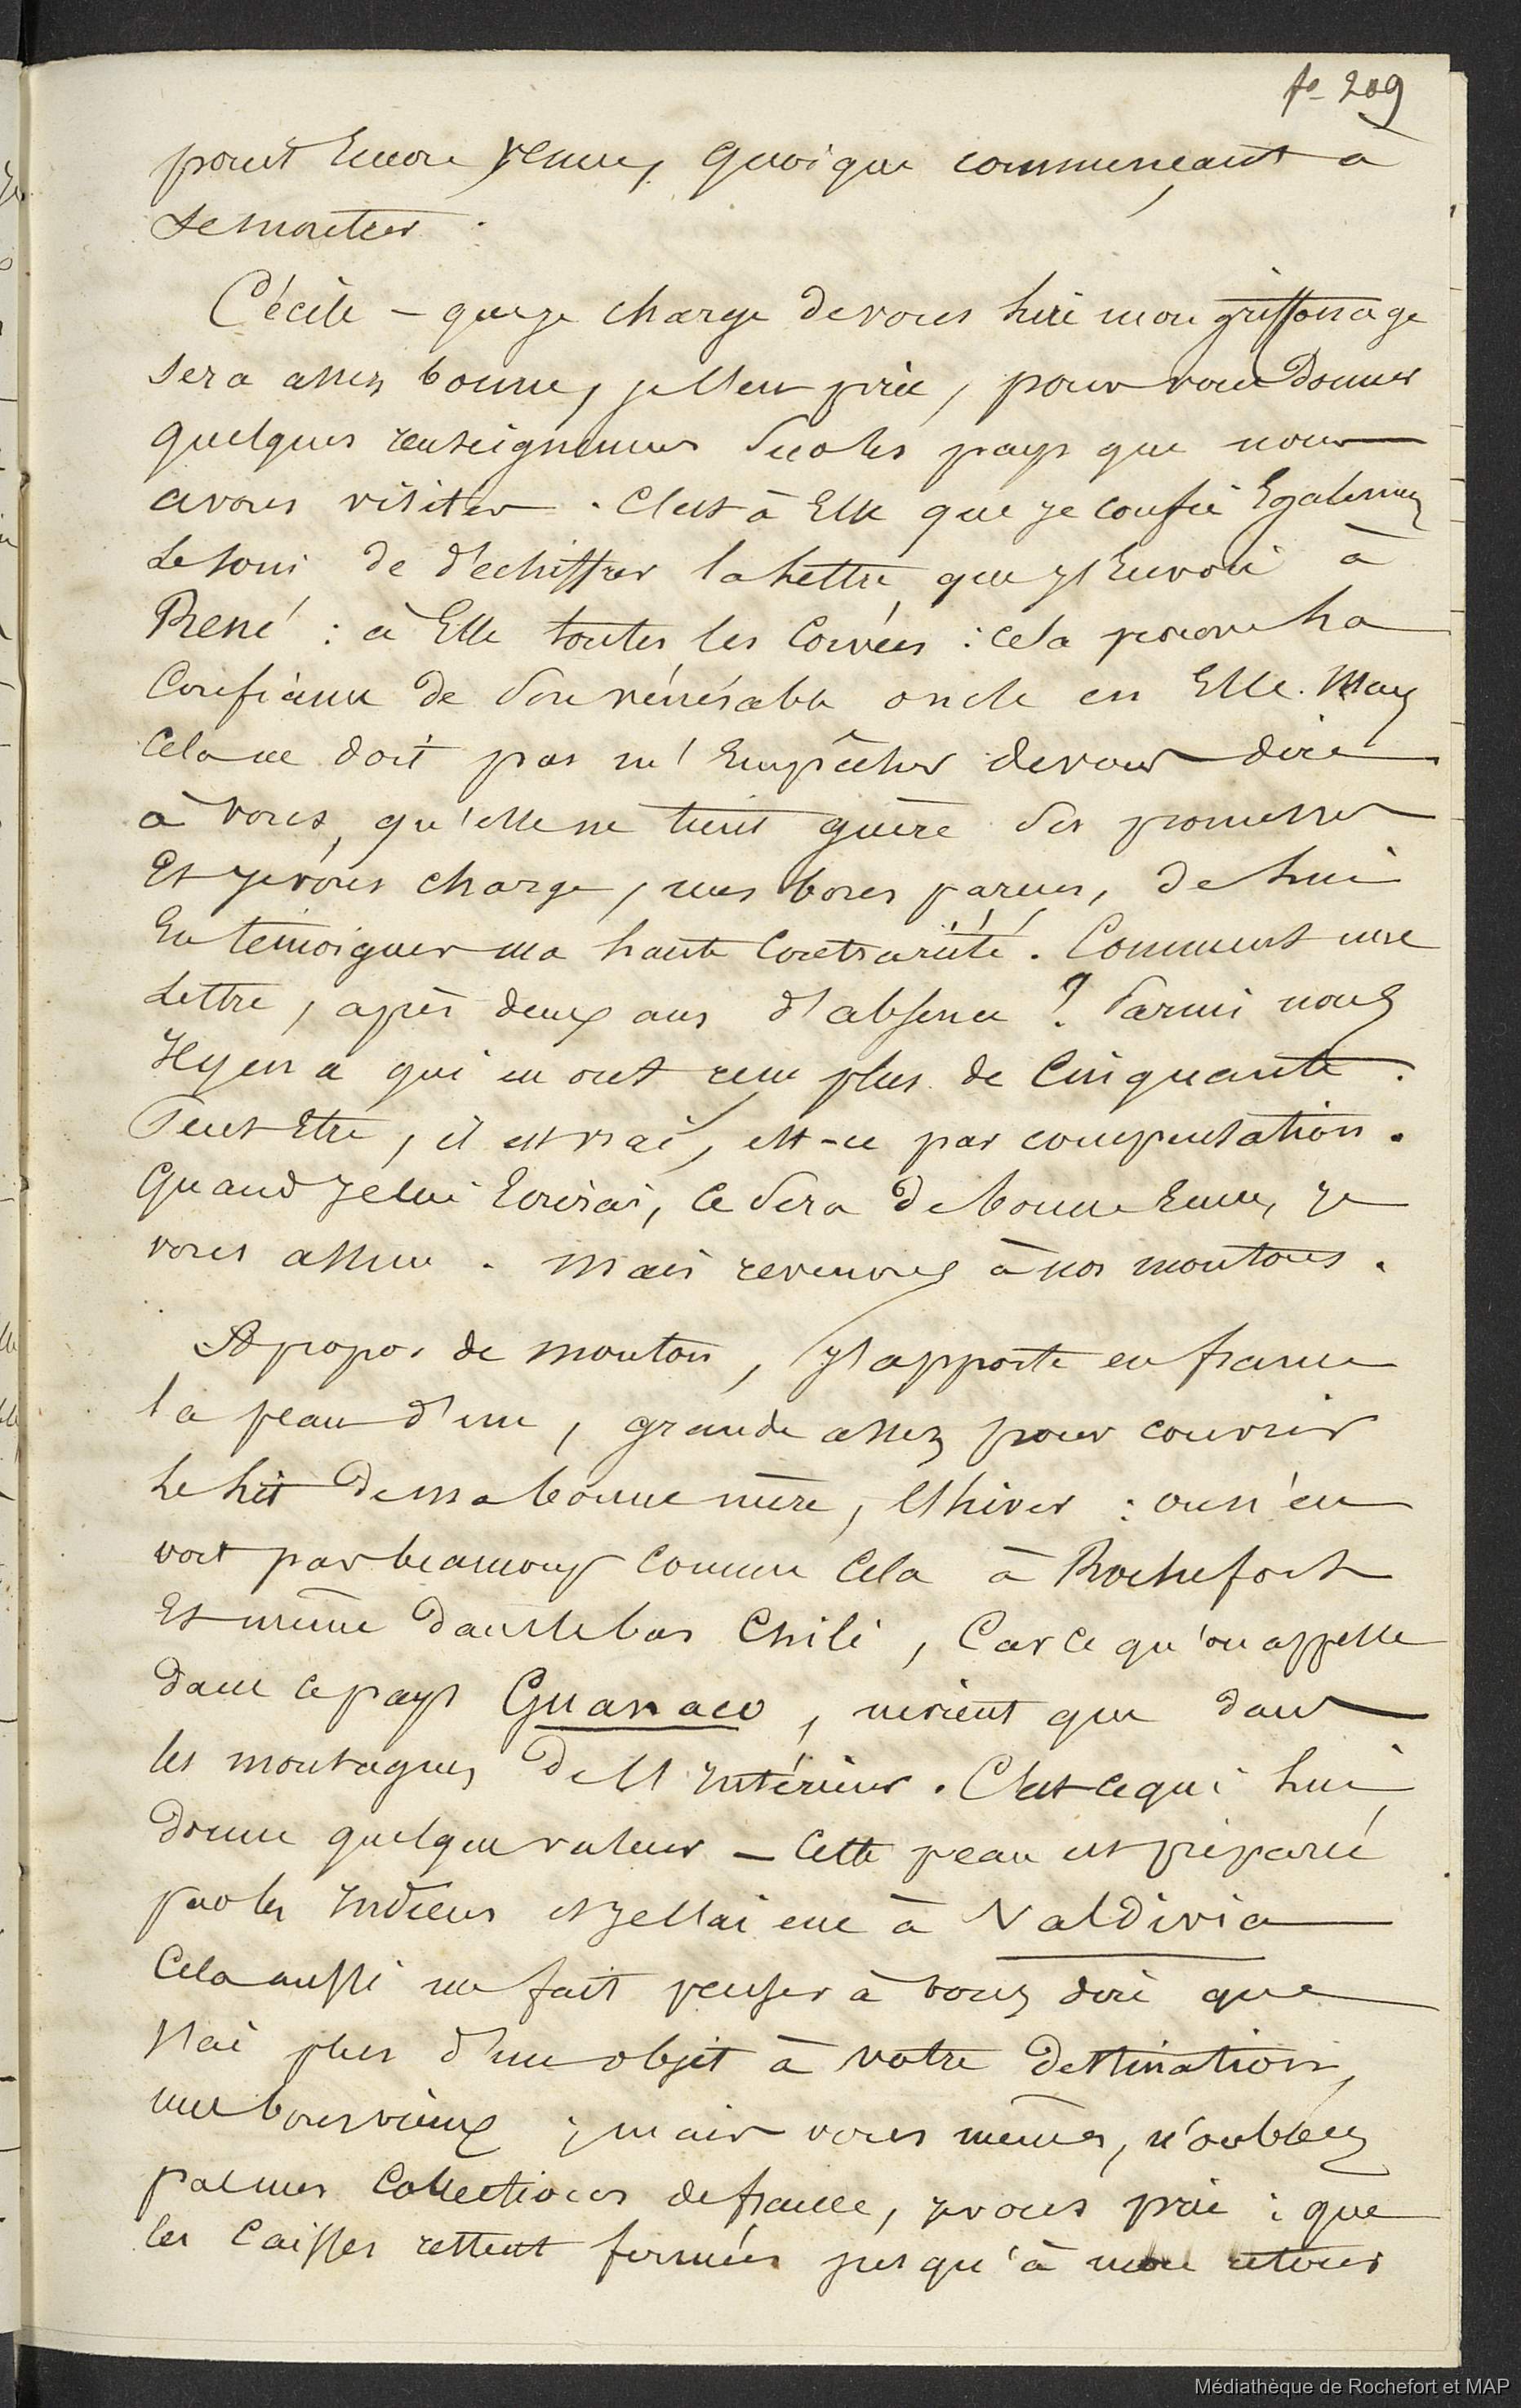 fo 209
point encore venue, quoique commençant à
se montrer.
Cécile – que je charge de vous lire mon griffonage
sera assez bonne, je l'en prie, pour vous donner
quelques renseignemens sur les pays que nous
avons visités. C'est à Elle que je confie Egalement
le soin de déchiffrer la lettre que j'envoie à
René : à Elle toutes les Corvées : cela prouve la
Confiance de son vénérable oncle en Elle. Mais
Cela ne doit pas m'empêcher de vous dire
à vous, qu'elle ne tient guère ses promesses
Et je vous charge, mes bons parens, de lui
En témoigner ma haute Contrariété. Comment une
Lettre, après deux ans d'absence ? Parmi nous
Il y en a qui en ont reçu plus de Cinquante.
Peut-Etre, il est vrai, est-ce par compensation.
Quand je lui Ecrirai, Ce sera de bonne Encre, je
vous assure. Mais revenons à nos moutons.
A propos de mouton, j'apporte en france
la peau d'un, grande assez pour couvrir
le lit de ma bonne mère, l'hiver : on n'en
voit pas beaucoup Comme Cela à Rochefort
Et même dans le bas Chili, Car Ce qu'on appelle
dans ce pays Guanaco, ne vient que dans
les montagnes de l'intérieur. C'est ce qui lui
donne quelque valeur – Cette peau est préparée
par les Indiens et je l'ai eue à Valdivia
Cela aussi me fait penser à vous dire que
J'ai plus d'un objet à votre destination,
mes bons vieux ; mais vous mêmes, n'oubliez
pas mes Collections de france, je vous prie : que
les Caisses restent fermées jusqu'à mon retour
Médiathèque de Rochefort et MAP